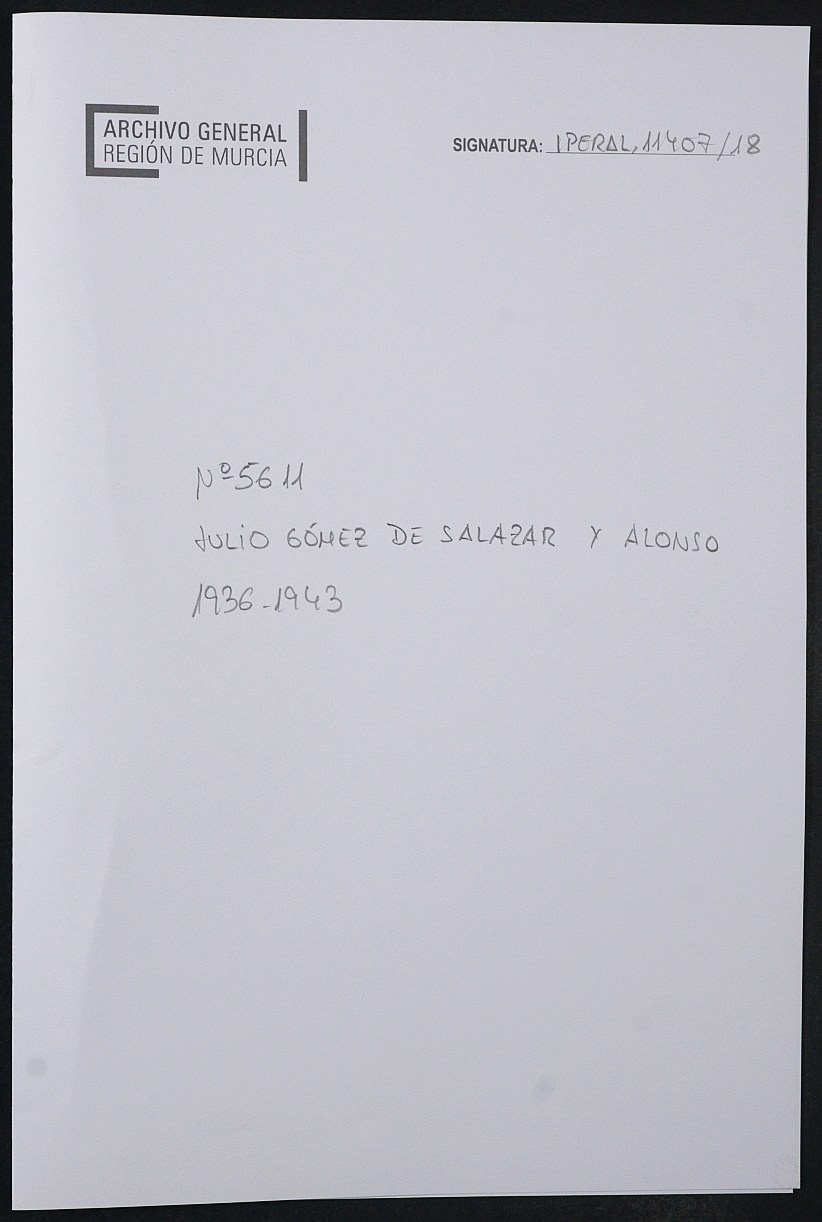 ARCHIVO GENERAL
REGIÓN DE MURCIA
SIGNATURA: IPERAL, 11407/18
Nº 5611
JULIO GÓMEZ DE SALAZAR Y ALONSO
1936-1943